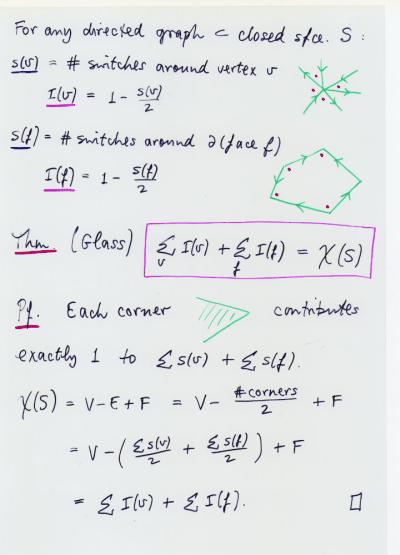 For any directed graph ⊂ closed sfce. S :
s(v) = # switches around vertex v
I(v) = 1 - s(v)/2
s(f) = # switches around ∂(face f)
I(f) = 1 - s(f)/2
Thm. (Glass) Σ_v I(v) + Σ_f I(f) = χ(S)
Pf. Each corner contributes
exactly 1 to Σ s(v) + Σ s(f).
χ(S) = V - E + F = V - #corners/2 + F
= V - ( Σ s(v)/2 + Σ s(f)/2 ) + F
= Σ I(v) + Σ I(f). □